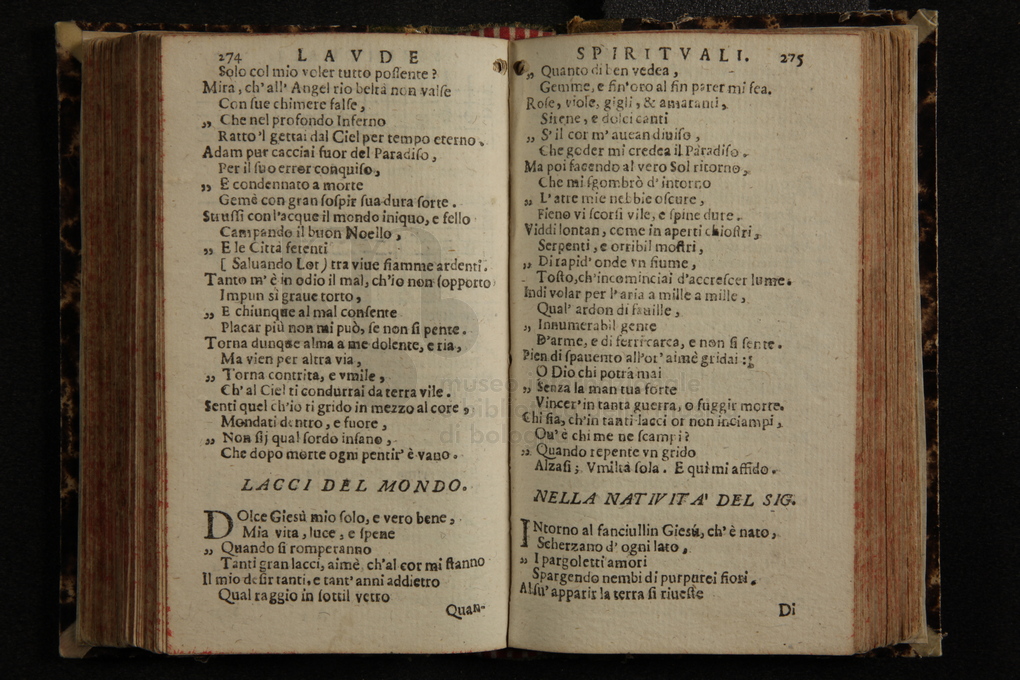 274 LAVDE
Solo col mio voler tutto possente?
Mira, ch'all' Angel rio beltà non valse
Con sue chimere false,
„ Che nel profondo Inferno
Ratto'l gettai dal Ciel per tempo eterno.
Adam pur cacciai fuor del Paradiso,
Per il suo error conquiso,
„ E condennato a morte
Gemè con gran sospir sua dura sorte.
Strussi con l'acque il mondo iniquo, e fello
Campando il buon Noello,
„ E le Città fetenti
[ Saluando Lot) tra viue fiamme ardenti.
Tanto m'è in odio il mal, ch'io non sopporto
Impun sì graue torto,
„ E chiunque al mal consente
Placar più non mi può, se non si pente.
Torna dunque alma a me dolente, e ria,
Ma vien per altra via,
„ Torna contrita, e vmile,
Ch'al Ciel ti condurrai da terra vile.
Senti quel ch'io ti grido in mezzo al core,
Mondati dentro, e fuore,
„ Non sij qual sordo insano,
Che dopo morte ogni pentir' è vano.
LACCI DEL MONDO.
DOlce Giesù mio solo, e vero bene,
Mia vita, luce, e spene
„ Quando si romperanno
Tanti gran lacci, aimè, ch'al cor mi stanno
Il mio desir tanti, e tant' anni addietro
Qual raggio in sottil vetro
Quan-
SPIRITVALI. 275
„ Quanto di ben vedea,
Gemme, e fin'oro al fin parer mi fea.
Rose, viole, gigli, & amaranti,
Sirene, e dolci canti
„ S'il cor m'auean diuiso,
Che goder mi credea il Paradiso.
Ma poi facendo al vero Sol ritorno,
Che mi sgombrò d'intorno
„ L'atre mie nebbie oscure,
Fieno vi scorsi vile, e spine dure.
Viddi lontan, come in aperti chiostri,
Serpenti, e orribil mostri,
„ Di rapid' onde vn fiume,
Tosto, ch'incominciai d'accrescer lume.
Indi volar per l'aria a mille a mille,
Qual' ardon di fauille,
„ Innumerabil gente
D'arme, e di ferri carca, e non si sente.
Pien di spauento all'or' aimè gridai:
O Dio chi potrà mai
„ Senza la man tua forte
Vincer' in tanta guerra, o fuggir morte.
Chi fia, ch'in tanti lacci or non inciampi,
Ou' è chi me ne scampi?
„ Quando repente vn grido
Alzasi; Vmiltà sola. E quì mi affido.
NELLA NATIVITA' DEL SIG.
INtorno al fanciullin Giesù, ch'è nato,
Scherzano d'ogni lato,
„ I pargoletti amori
Spargendo nembi di purpurei fiori.
Al su' apparir la terra si riueste
Di
museo
biblio
di bologna